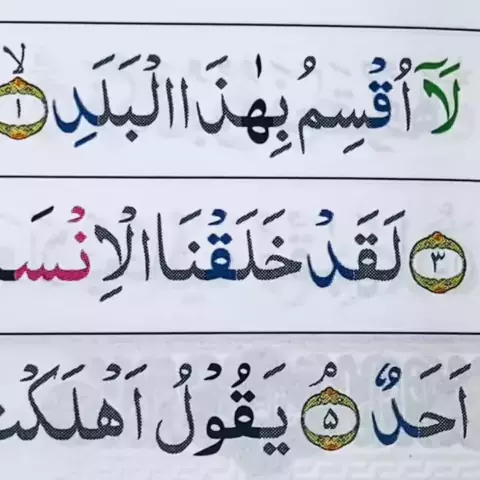 لَآ اُقْسِمُ بِهٰذَا الْبَلَدِ ۙ ۱
۳ لَقَدْ خَلَقْنَا الْاِنْسَ
اَحَدٌ ۘ ۵ يَقُوْلُ اَهْلَكْتُ